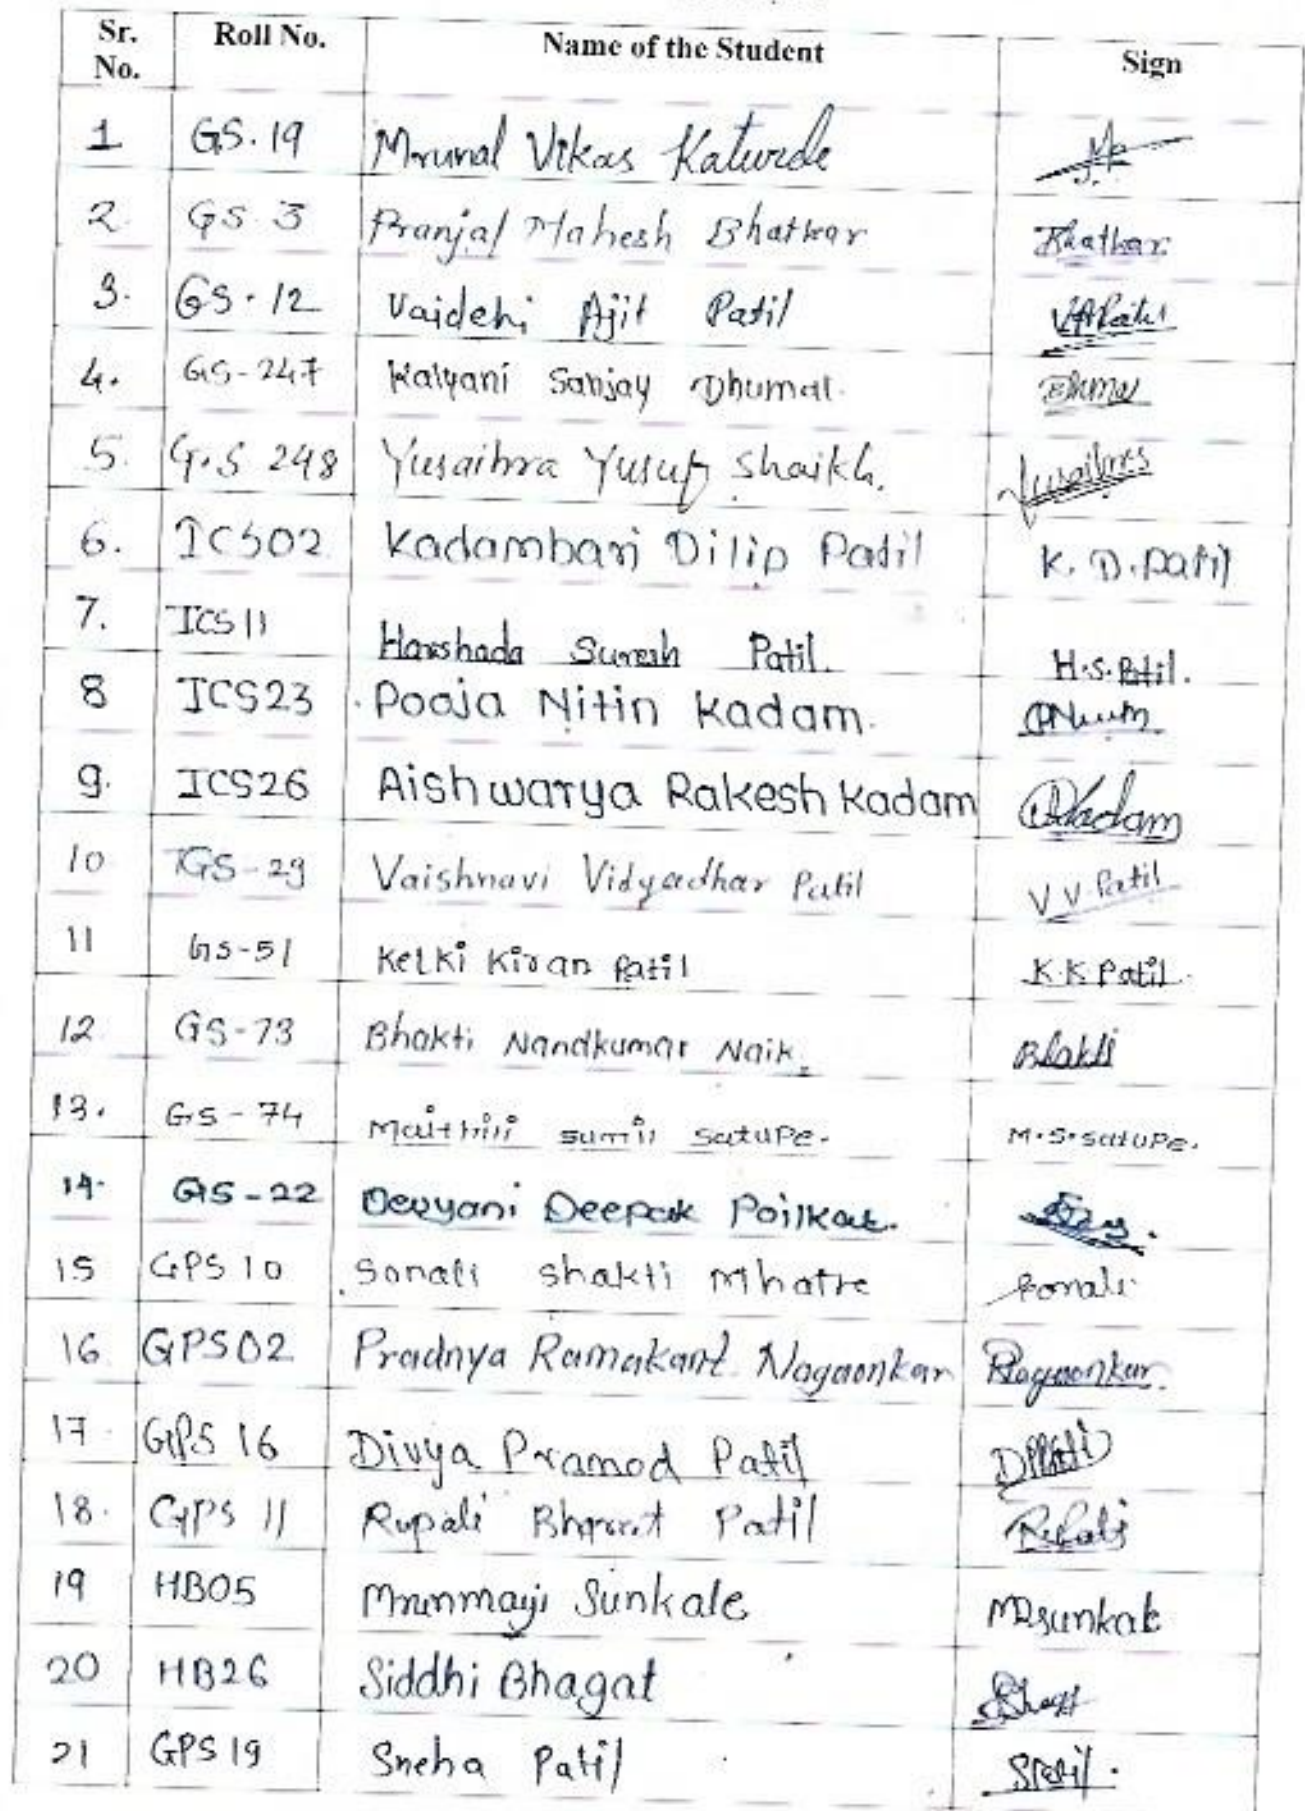 Sr. No. Roll No. Name of the Student Sign
1 GS.19 Mrunal Vikas Katurde
2. GS 3 Pranjal Mahesh Bhatkar Bhatkar
3. GS.12 Vaidehi Ajit Patil VAPatil
4. GS-247 Kalyani Sanjay Dhumal.
5. G.S 248 Yusaihra Yusuf Shaikh.
6. ICS02 Kadambari Dilip Patil K. D. Patil
7. ICS11 Harshada Suresh Patil. H.S.Patil.
8 ICS23 Pooja Nitin Kadam.
9. ICS26 Aishwarya Rakesh Kadam
10 GS-29 Vaishnavi Vidyadhar Patil V V Patil
11 GS-51 Ketki Kiran Patil K.K Patil.
12 GS-73 Bhakti Nandkumar Naik. Bhakti
13. GS-74 Maithili sumil satupe. M.S.satupe.
14. GS-22 Devyani Deepak Poilkar.
15 GPS 10 Sonali shakti Mhatre Sonali
16 GPS02 Pradnya Ramakant Nagaonkar PNagaonkar.
17 GPS 16 Divya Pramod Patil
18. GPS 11 Rupali Bharat Patil Rupali
19 HB05 Mrunmayi Sunkale
20 HB26 Siddhi Bhagat
21 GPS 19 Sneha Patil SPatil.